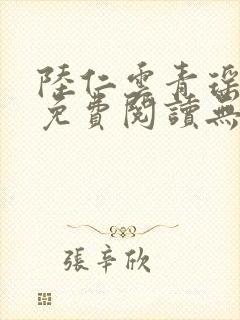 陸仁雲青瑶
免費閱讀無
張辛欣